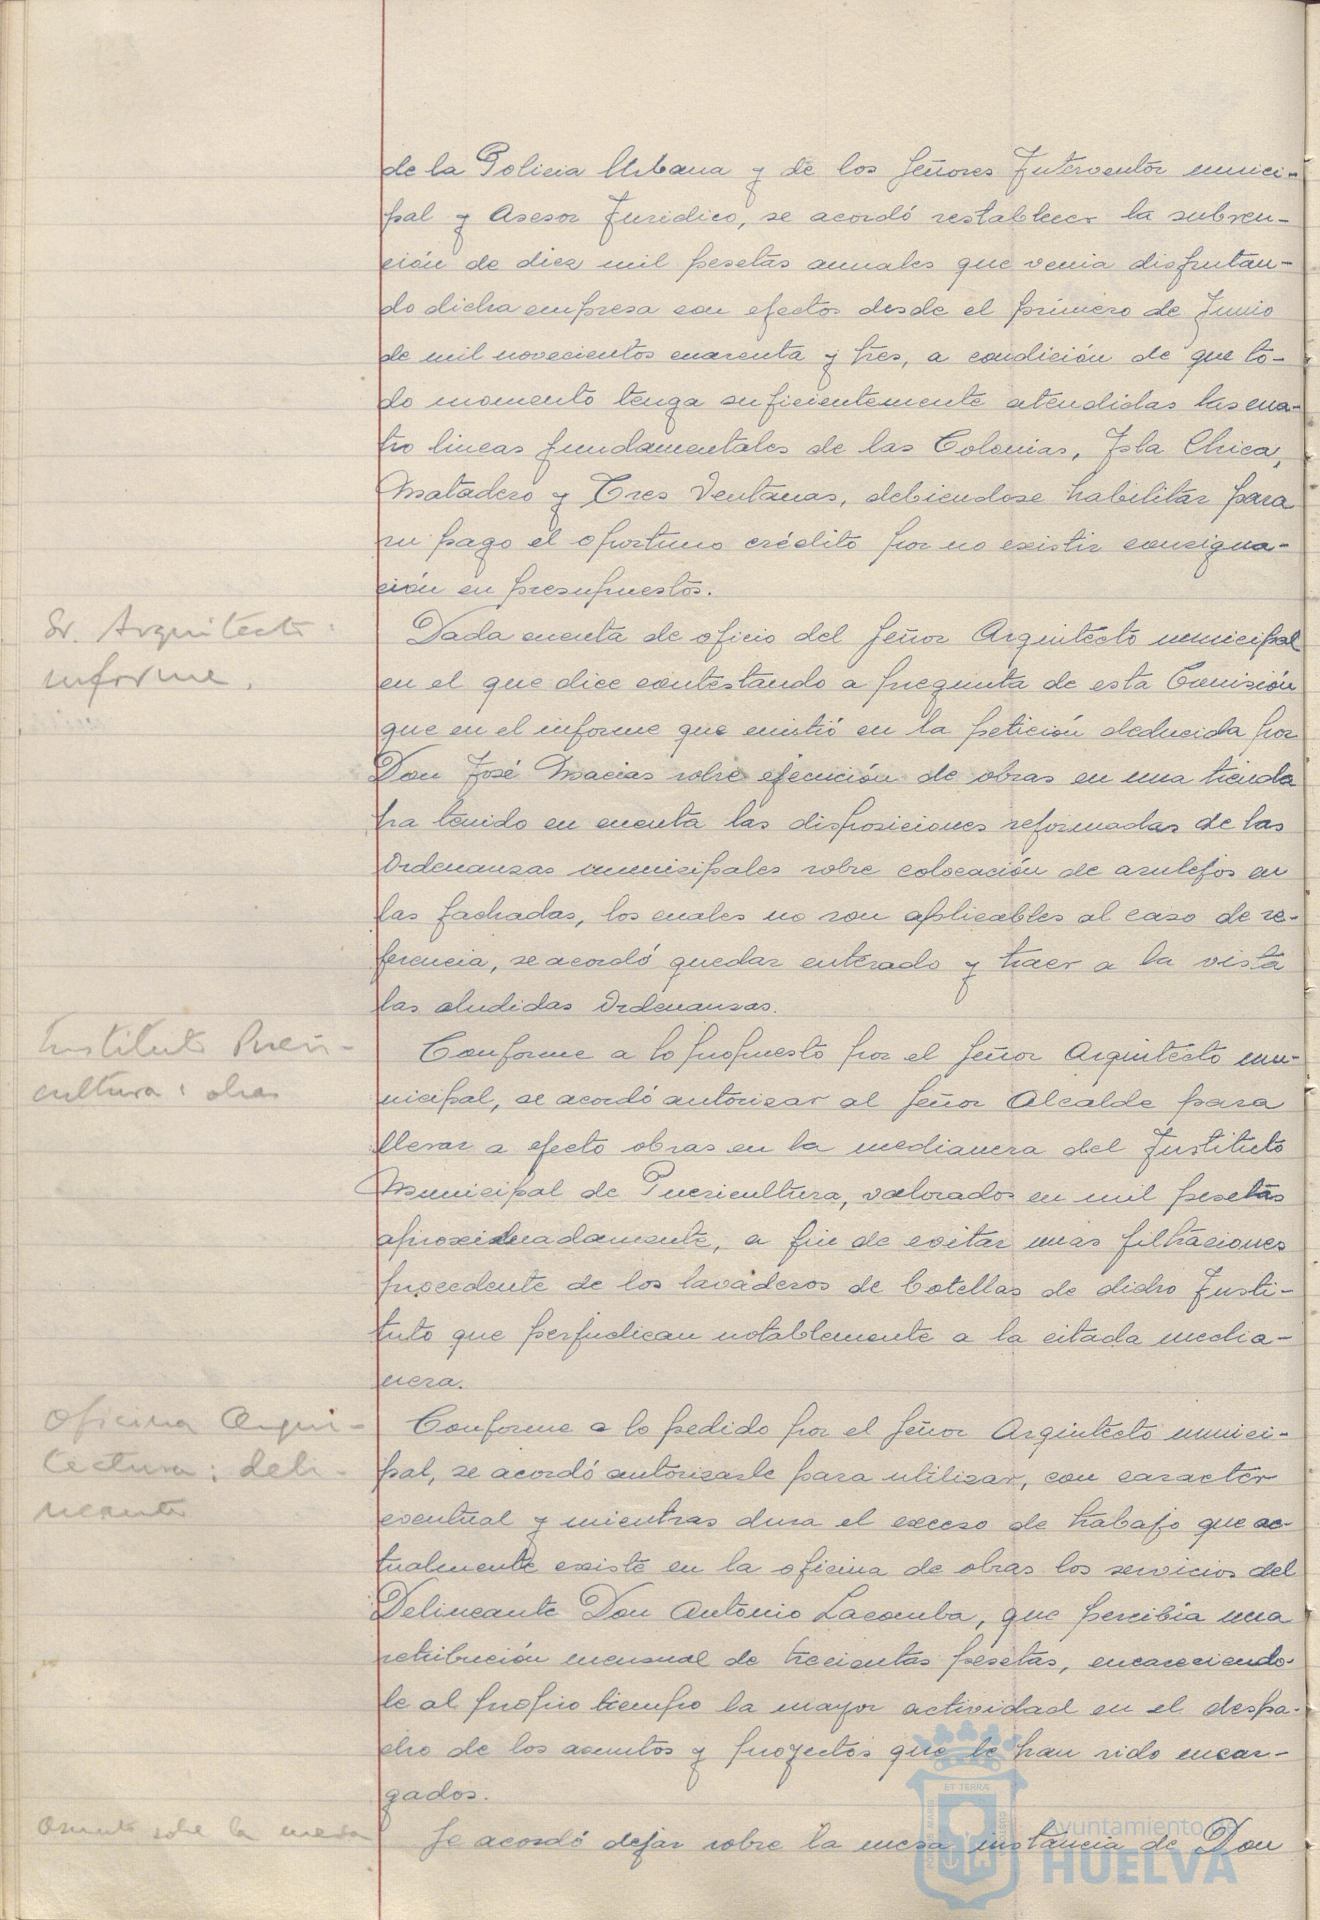 de la Policia Urbana y de los Señores Interventor munici-
pal y Asesor Juridico, se acordó restablecer la subven-
ción de diez mil pesetas anuales que venia disfrutan-
do dicha empresa con efectos desde el primero de Junio
de mil novecientos cuarenta y tres, a condición de que to-
do momento tenga suficientemente atendidas las cua-
tro lineas fundamentales de las Colonias, Isla Chica,
Matadero y Tres Ventanas, debiendose habilitar para
su pago el oportuno crédito por no existir consigna-
ción en presupuestos.
Sr. Arquitecto:
informe.
Dada cuenta de oficio del Señor Arquitecto municipal
en el que dice contestando a pregunta de esta Comisión
que en el informe que emitió en la petición deducida por
Don José Macias sobre ejecución de obras en una tienda
ha tenido en cuenta las disposiciones reformadas de las
Ordenansas municipales sobre colocación de azulejos en
las fachadas, los cuales no son aplicables al caso de re-
ferencia, se acordó quedar enterado y traer a la vista
las aludidas Ordenansas.
Instituto Pueri-
cultura: obras
Conforme a lo propuesto por el Señor Arquitecto mu-
nicipal, se acordó autorizar al Señor Alcalde para
llevar a efecto obras en la medianera del Instituto
Municipal de Puericultura, valorados en mil pesetas
aproximadamente, a fin de evitar unas filtraciones
procedente de los lavaderos de botellas de dicho Insti-
tuto que perjudican notablemente a la citada media-
nera.
Oficina Arqui-
tectura: deli-
neante
Conforme a lo pedido por el Señor Arquitecto munici-
pal, se acordó autorizarle para utilizar, con caracter
eventual y mientras dura el exceso de trabajo que ac-
tualmente existe en la oficina de obras los servicios del
Delineante Don Antonio Lacomba, que percibia una
retribución mensual de trecientas pesetas, encareciendo-
le al propio tiempo la mayor actividad en el despa-
cho de los asuntos y proyectos que le han sido encar-
gados.
Asunto sobre la mesa
Se acordó dejar sobre la mesa instancia de Don
ET TERRÆ
Ayuntamiento de
HUELVA